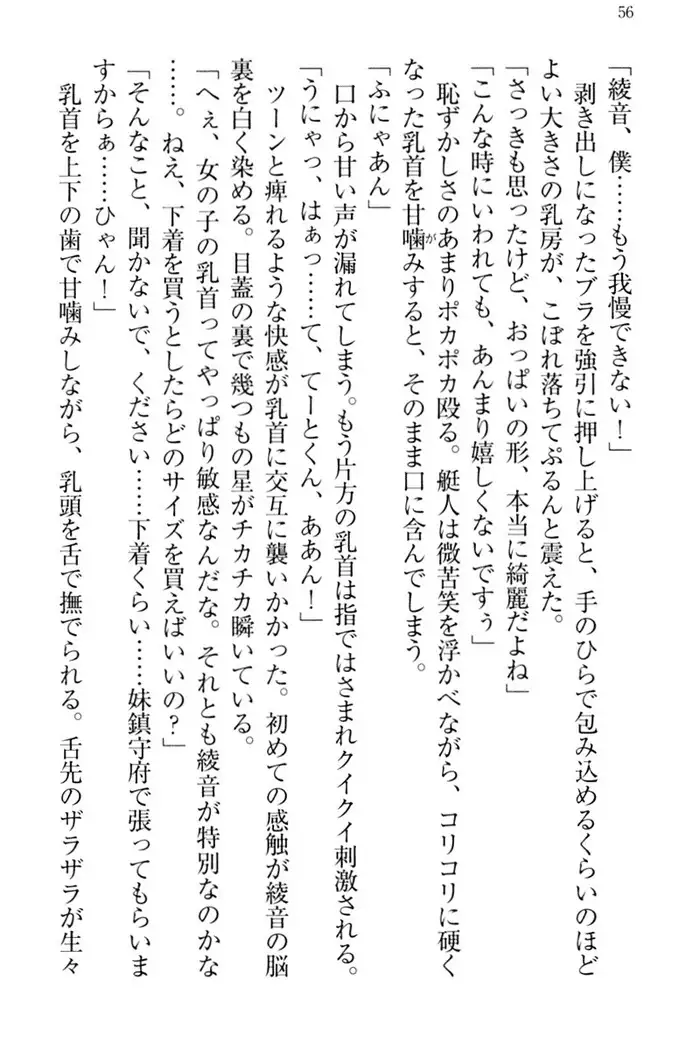 56
「綾音、僕……もう我慢できない！」
剥き出しになったブラを強引に押し上げると、手のひらで包み込めるくらいのほど
よい大きさの乳房が、こぼれ落ちてぷるんと震えた。
「さっきも思ったけど、おっぱいの形、本当に綺麗だよね」
「こんな時にいわれても、あんまり嬉しくないですぅ」
恥ずかしさのあまりポカポカ殴る。艇人は微苦笑を浮かべながら、コリコリに硬く
なった乳首を甘噛みすると、そのまま口に含んでしまう。
「ふにゃあん」
口から甘い声が漏れてしまう。もう片方の乳首は指ではさまれクイクイ刺激される。
「うにゃっ、はぁっ……て、てーとくん、ああん！」
ツーンと痺れるような快感が乳首に交互に襲いかかった。初めての感触が綾音の脳
裏を白く染める。目蓋の裏で幾つもの星がチカチカ瞬いている。
「へぇ、女の子の乳首ってやっぱり敏感なんだな。それとも綾音が特別なのかな
……。ねえ、下着を買うとしたらどのサイズを買えばいいの？」
「そんなこと、聞かないで、ください……下着くらい……妹鎮守府で張ってもらいま
すからぁ……ひゃん！」
乳首を上下の歯で甘噛みしながら、乳頭を舌で撫でられる。舌先のザラザラが生々